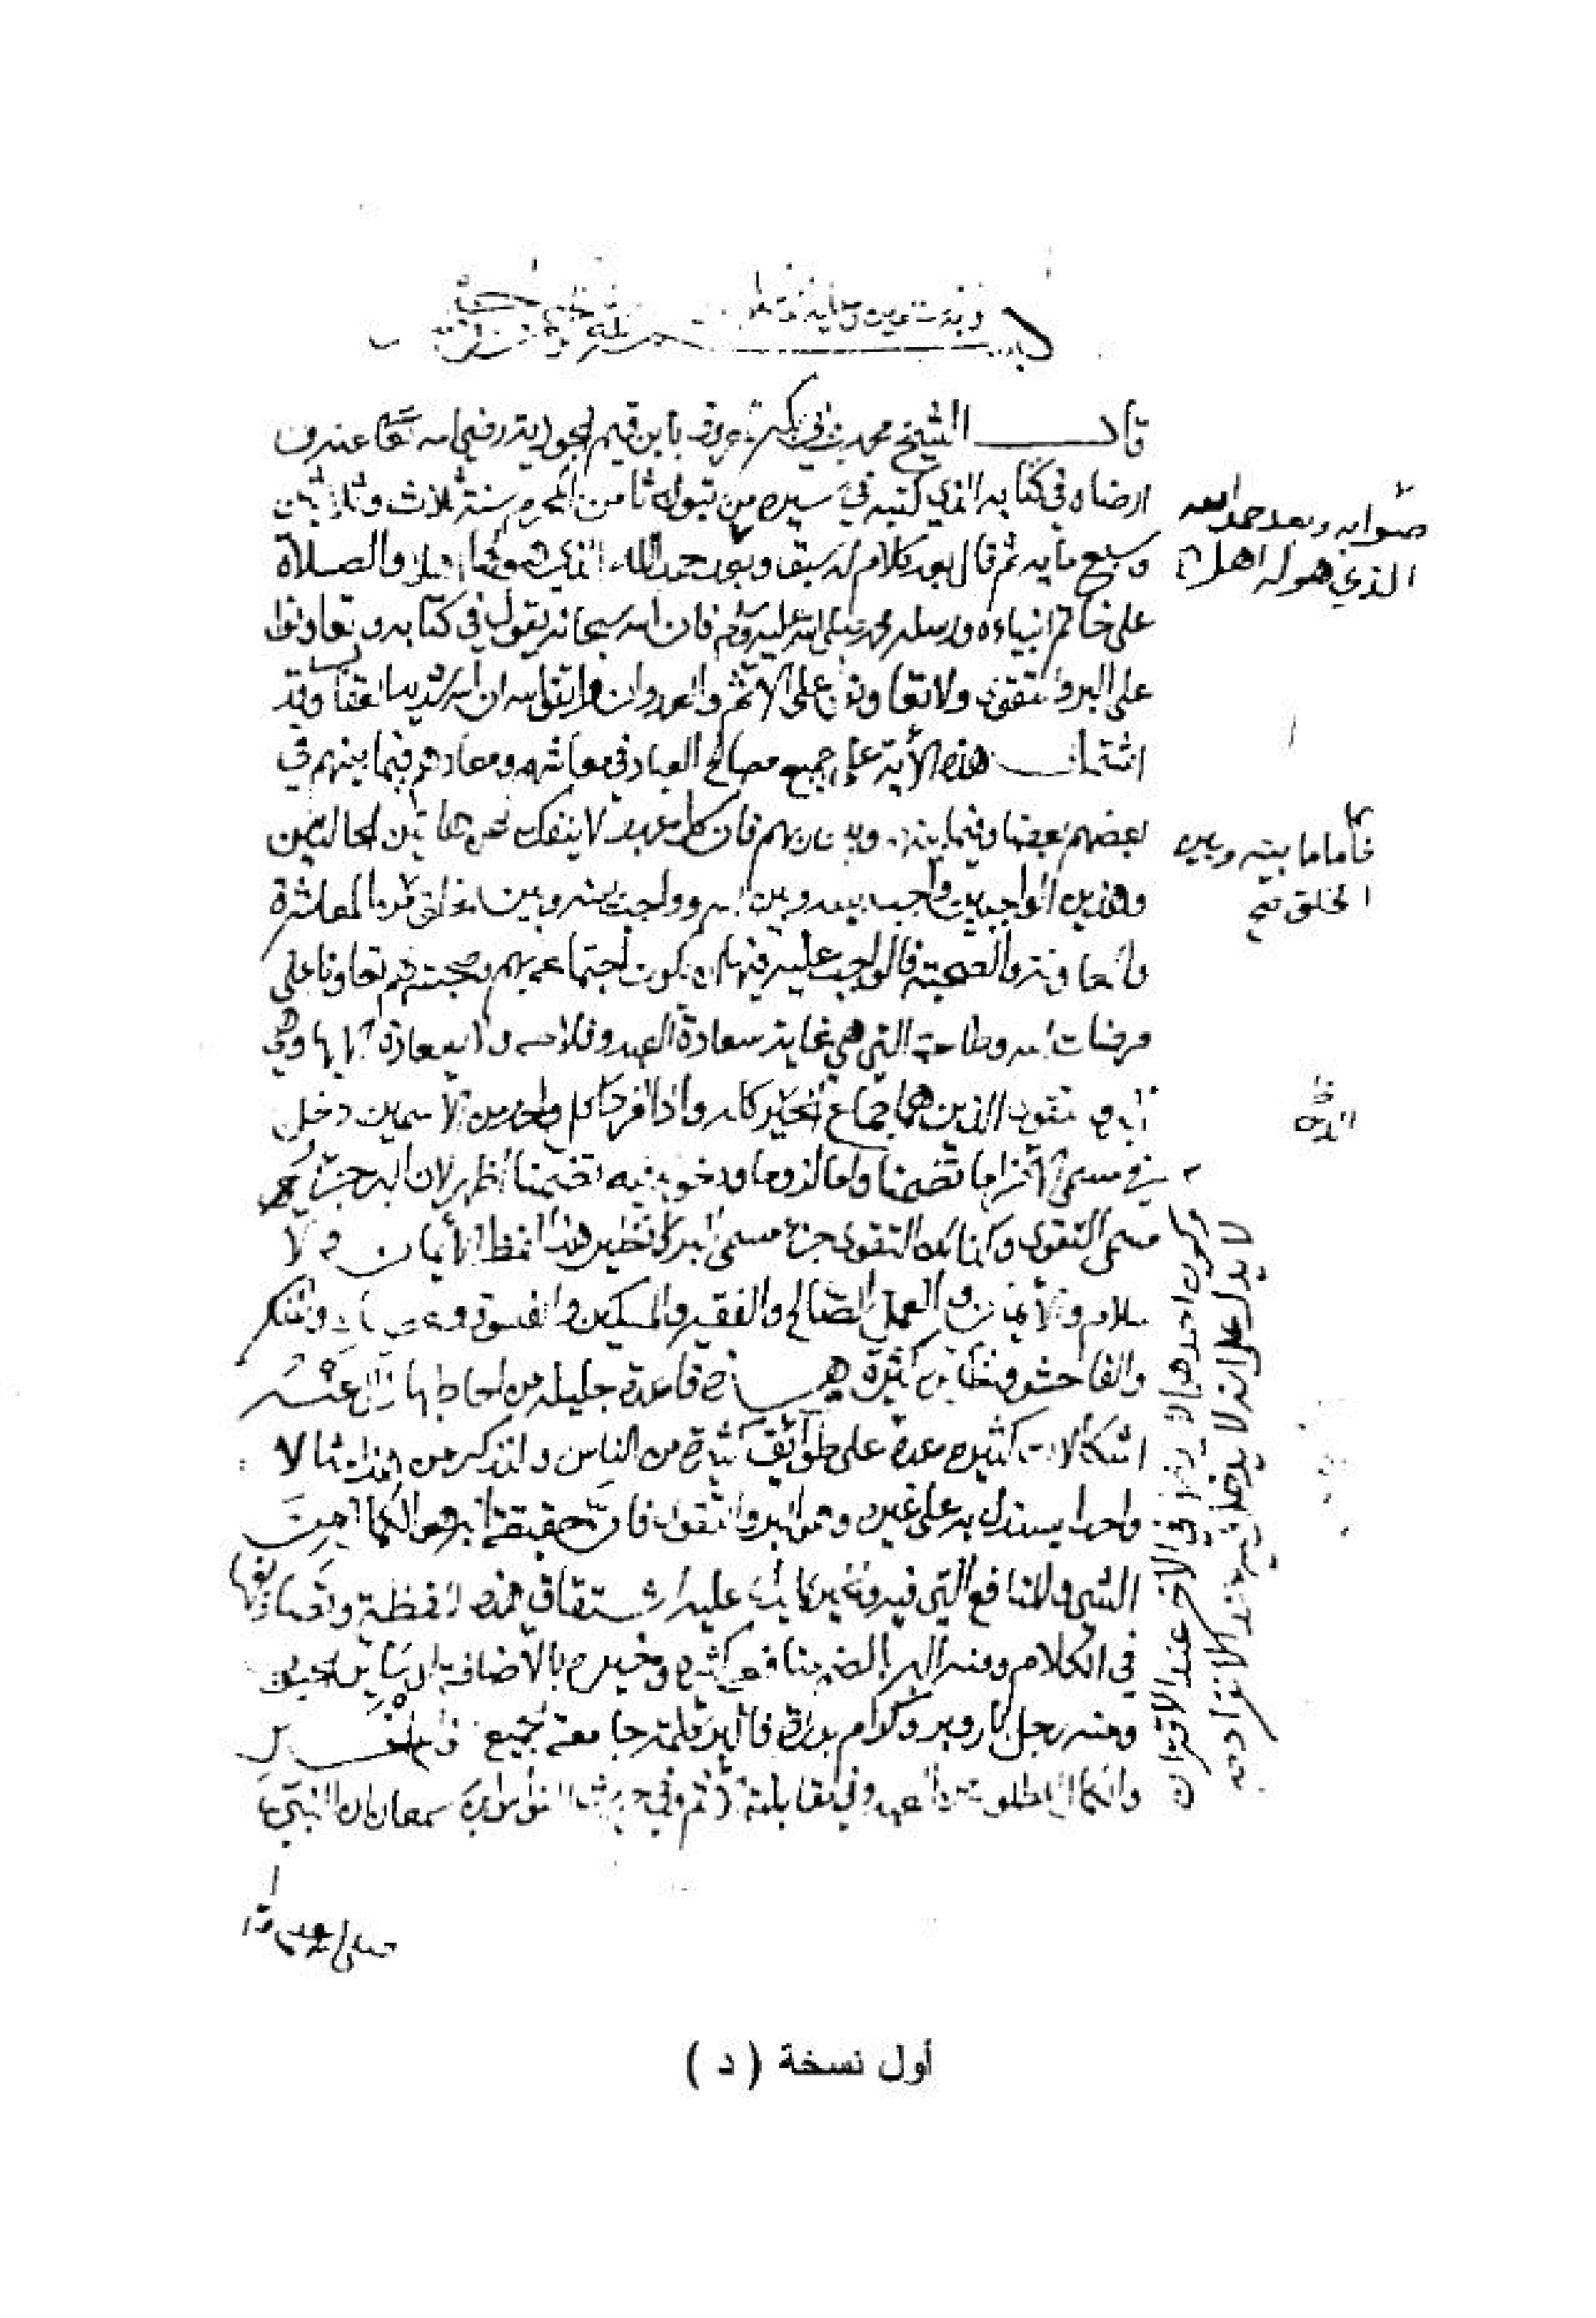 وبه نستعين وعليه
بسم الله الرحمن الرحيم
قال الشيخ محمد بن أبي بكر عرف بابن قيم الجوزية رضي الله تعا عنه و
ارضاه في كتابه الذي كتبه في سيره من تبوك ثامن المحرم سنة ثلاث وثلاثين
وسبع مايه ثم قال بعد كلام له سبق وبعد حمد الله الذي والصلاة
على خاتم انبياءه ورسله محمد صلى الله عليه وسلم فان الله سبحانه يقول في كتابه وتعاونوا
على البر والتقوى ولا تعاونوا على الاثم والعدوان واتقوا الله ان الله شديد العقاب وقد
اشتملت هذه الأية على جميع مصالح العباد في معاشهم ومعادهم فيما بينهم في
بعضهم بعضا وفيما بينهم وبين ربهم فان كل عبد لا ينفك عن هاتين الحالتين
وهذين الواجبين واجب بينه وبين الله وواجب بينه وبين الخلق من المعاشرة
والمعاونة والصحبة فالواجب عليه فيها ان يكون اجتماعه بهم وصحبته لهم تعاونا على
مرضات الله وطاعته التي هي غاية سعادة العبد وفلاحه ولا سعادة له الا بها وهي
البر والتقوى الذين هما جماع الخير كله واذا افرد كل واحد من الاسمين دخل
في مسمى الآخر اما تضمنا واما لزوما ودخوله فيه تضمنا اظهر لان البر جزء
مسمى التقوى وكذلك التقوى جزء مسمى البر ونظير هذا لفظ الأيمان والا
سلام والأيمان والعمل الصالح والفقير والمسكين والفسوق والعصيان والمنكر
والفاحشه ونظايره كثيرة وهذه قاعدة جليله من احاط بها زال عنه
اشكالات كثيره عدة على طوائف كثيرة من الناس ولنذكر من هذا مثالا
واحدا يستدل به على غيره وهو البر والتقوى فان حقيقة البر هو الكمال
الشي والمنافع التي فيه والخير كما يدل عليه اشتقاق هذه اللفظة وتصاريفها
في الكلام ومنه البر بالضم لمنافعه كثره وخيره بالاضافه الى سائر الحبوب
ومنه رجل بار وبر وكرام برره فالبر كلمة جامعة لجميع الخير
والكمال المطلوب من العبد وفي مقابلته الاثم وفي حديث النواس بن سمعان ان النبي
صلى الله عليه وسلم قا
صوابه وبعد حمد الله
الذي هو له اهل
فأما ما بينه وبين
الخلق صح
وكون احدهما لا يدخل في الاخر عند الاقتران
لا يدل على انه لا يدخل فيه عند الانفراد
أول نسخة ( د )